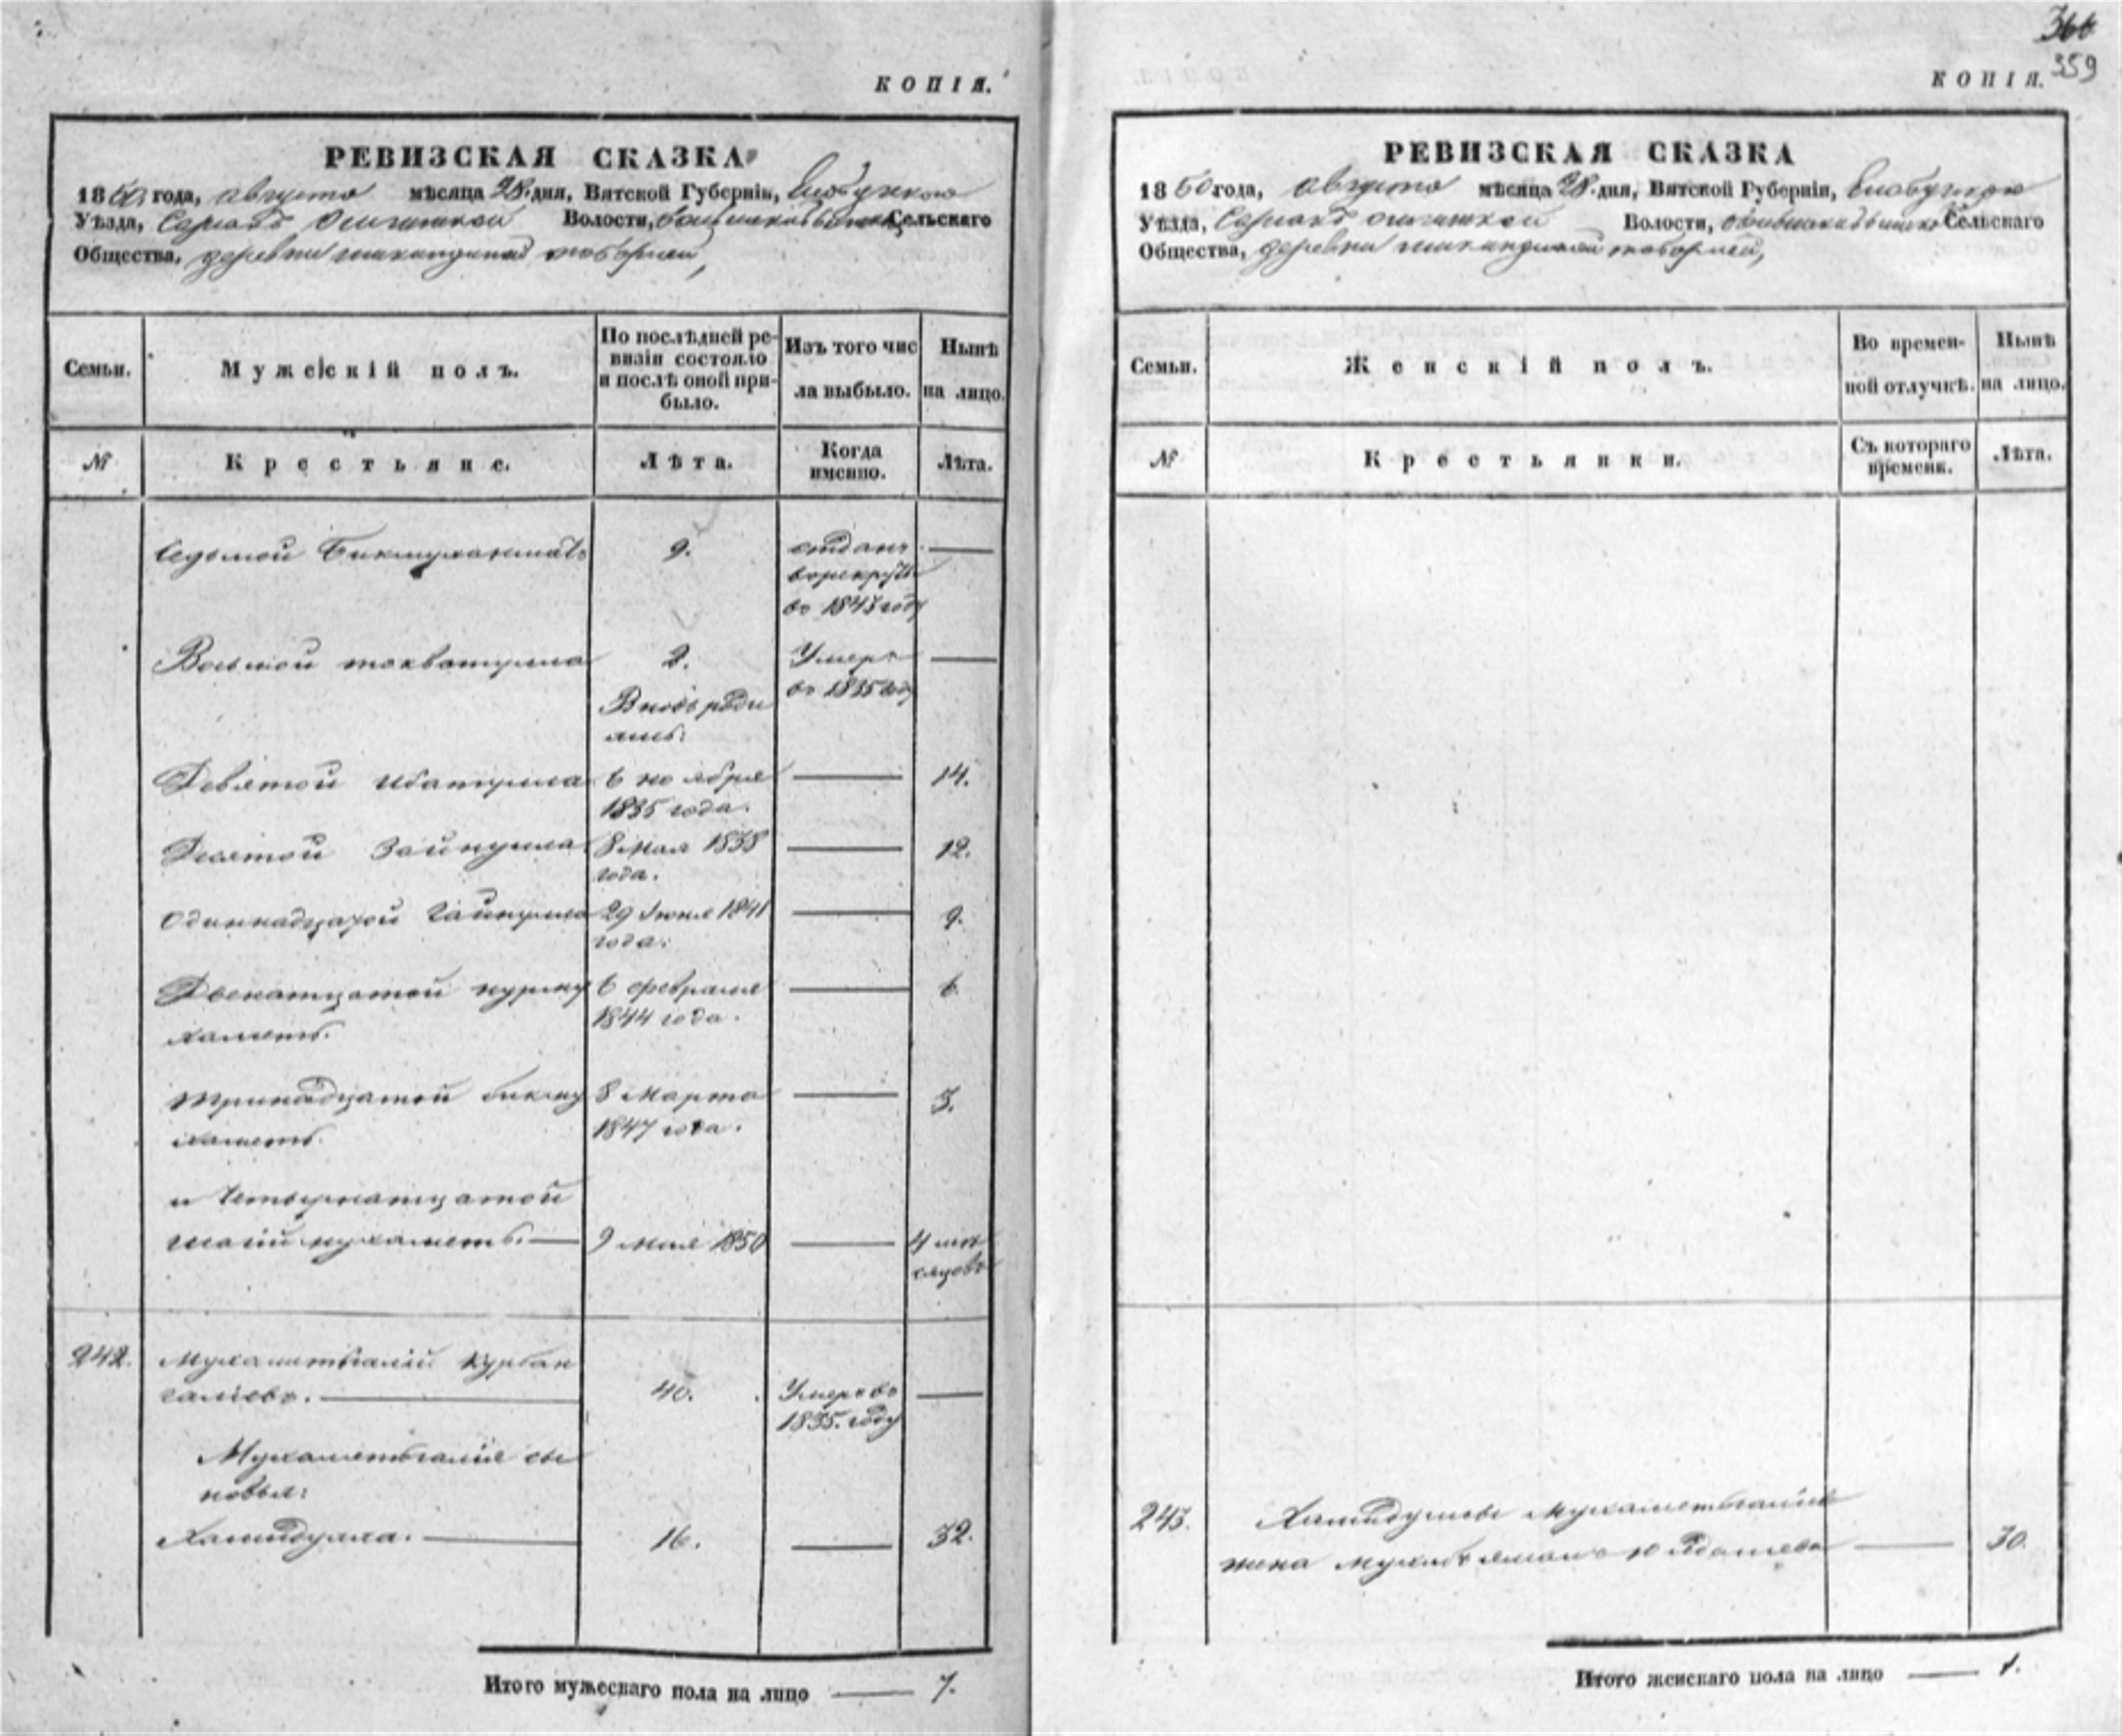 КОПІЯ.
РЕВИЗСКАЯ СКАЗКА
1850 года, августа мѣсяца 28 дня, Вятской Губерніи, Елабужскаго
Уѣзда, Волости, Сельскаго
Общества, деревни
Семьи.
Мужескій полъ.
По послѣдней ре-
визіи состояло
и послѣ оной при-
было.
Изъ того чис
ла выбыло.
Нынѣ
на лицо.
№
Крестьяне.
Лѣта.
Когда
именно.
Лѣта.
Седьмой Бикмухаметь 9. отданъ
врекруты
въ 1843 году
Восьмой 2. Умеръ
въ 1835 году
Вновь роди
лись:
Девятой Ибатулла 6 ноября 14.
1835 года.
Десятой Зайнулла 8 мая 1838 12.
года.
Одиннадцатой Гайнулла 29 Іюня 1841 9.
года.
Двенатцатой нурму 6 февраля 6
хаметь. 1844 года.
Тринадцатой бикму 8 марта 3.
хаметь. 1847 года.
и Четырнатцатой
мухаметь. 9 мая 1850 4 мѣ
сяцовъ
242. Мухаметьгалій Курбан
галіевъ. 40. Умеръ въ
1835. году
Мухаметьгалія сы
новья:
Хамидулла. 16. 32.
Итого мужескаго пола на лицо 7.
366
359
КОПІЯ.
РЕВИЗСКАЯ СКАЗКА
1850 года, августа мѣсяца 28 дня, Вятской Губерніи, Елабужскаго
Уѣзда, Волости, Сельскаго
Общества, деревни
Семьи.
Женскій полъ.
Во времен-
ной отлучкѣ.
Нынѣ
на лицо.
№
Крестьянки.
Съ котораго
времени.
Лѣта.
243. Хамидуллы Мухаметьгаліева
жена 30.
Итого женскаго пола на лицо 1.